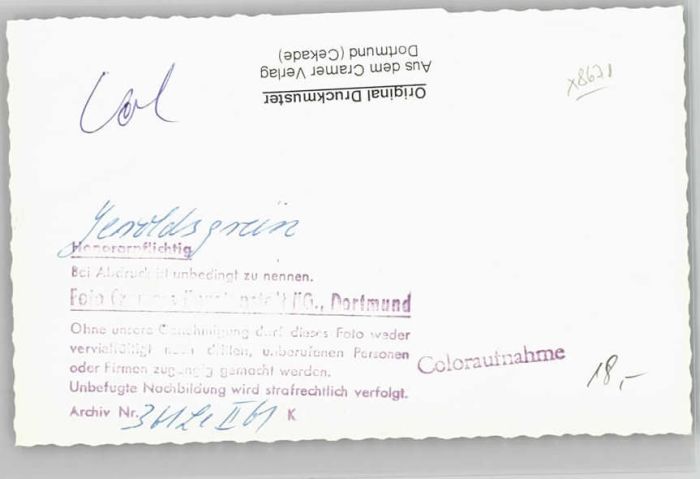 Original Druckmuster
Aus dem Cramer Verlag
Dortmund (Cekade)
x8671
Col
Geroldsgrün
Honorarpflichtig
Bei Abdruck ist unbedingt zu nennen.
Foto Cramers Kunstanstalt KG., Dortmund
Ohne unsere Genehmigung darf dieses Foto weder
vervielfältigt noch dritten, unberufenen Personen
oder Firmen zugängig gemacht werden.
Unbefugte Nachbildung wird strafrechtlich verfolgt.
Archiv Nr. K
Coloraufnahme
18,-